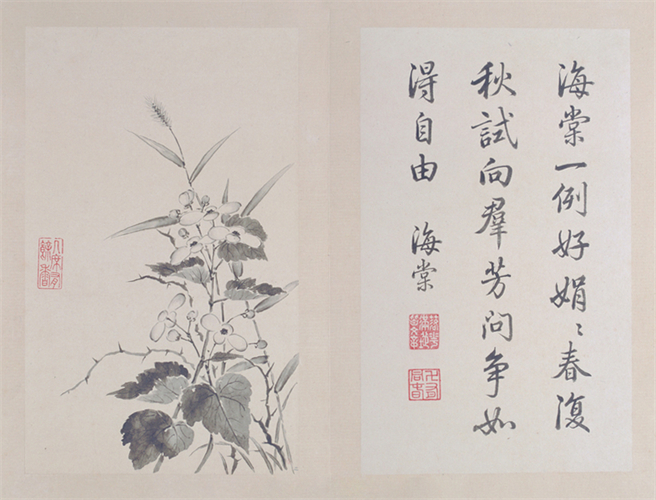 海棠一例好娟〻春復
秋試向羣芳问争如
得自由 海棠